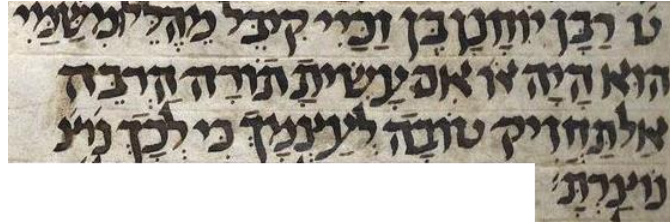 ט רַבָּן יוֹחָנָן בֶּן זַכַּיי קִיבֵּל מֵהֶלֵּל וּמִשַּׁמַּיי
הוּא הָיָה אוֹ אִם עָשִׂיתָ תוֹרָה הַרְבֵּה
אַל תַּחֲזִיק טוֹבָה לְעַצְמָךְ כִּי לְכָךְ נוֹצ
נוֹצָרְתָּ׳